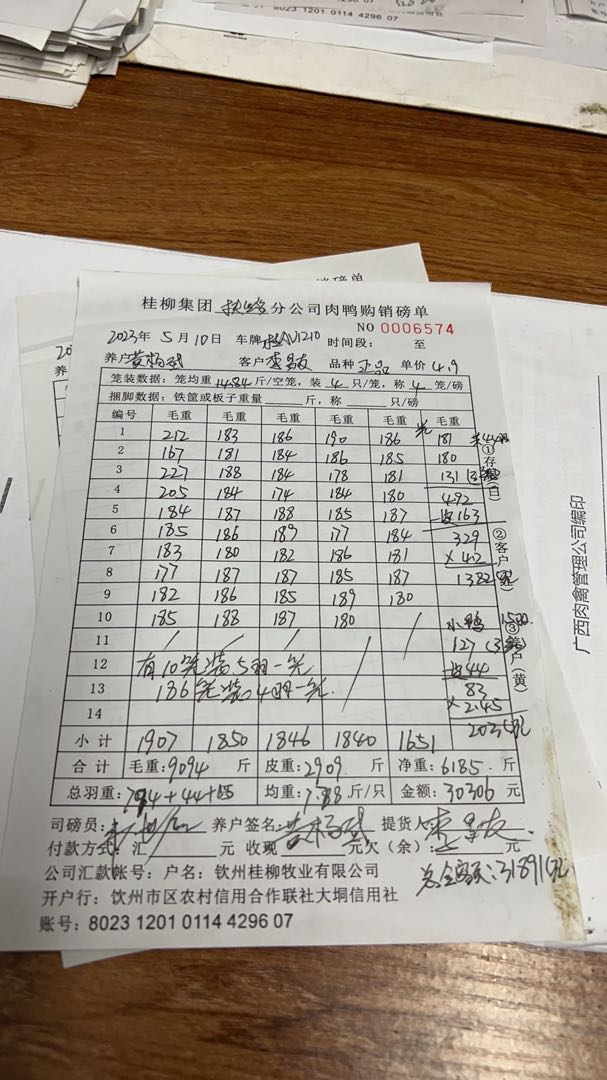 8023 1201 0114 4296 07
桂柳集团 分公司肉鸭购销磅单
NO 0006574
2023年 5月10日 车牌 时间段: 至
养户 黄杨 客户 品种 正品 单价 4.9
笼装数据:笼均重 14.84 斤/空笼,装 4 只/笼,称 4 笼/磅
捆脚数据:铁筐或板子重量 斤,称 只/磅
编号 毛重 毛重 毛重 毛重 毛重 毛重
1 212 183 186 190 186 181
2 167 181 184 186 185 180
3 227 188 184 178 181 131
4 205 184 174 184 180 492
5 184 187 188 185 187 皮163
6 185 186 189 177 184 329
7 183 180 182 186 181 ×4.2
8 177 187 187 185 187 1382元
9 182 186 185 189 180
10 185 188 187 180 小鸭
11 127
12 有10笼装5羽一笼 皮44
13 186笼装4羽一笼 83
14 ×2.45
203元
小计 1907 1850 1846 1840 1651
合计 毛重:9094 斤 皮重:2909 斤 净重:6185 斤
总羽重:794+44+ 均重:7.88斤/只 金额:30306 元
司磅员: 养户签名:黄杨 提货人:
付款方式:汇 元 收现 元欠(余): 元
公司汇款帐号:户名:钦州桂柳牧业有限公司
总金额:31891元
开户行:钦州市区农村信用合作联社大垌信用社
账号:8023 1201 0114 4296 07
①存 (白)
②客户
③养户(黄)
广西肉禽管理公司编印
磅单